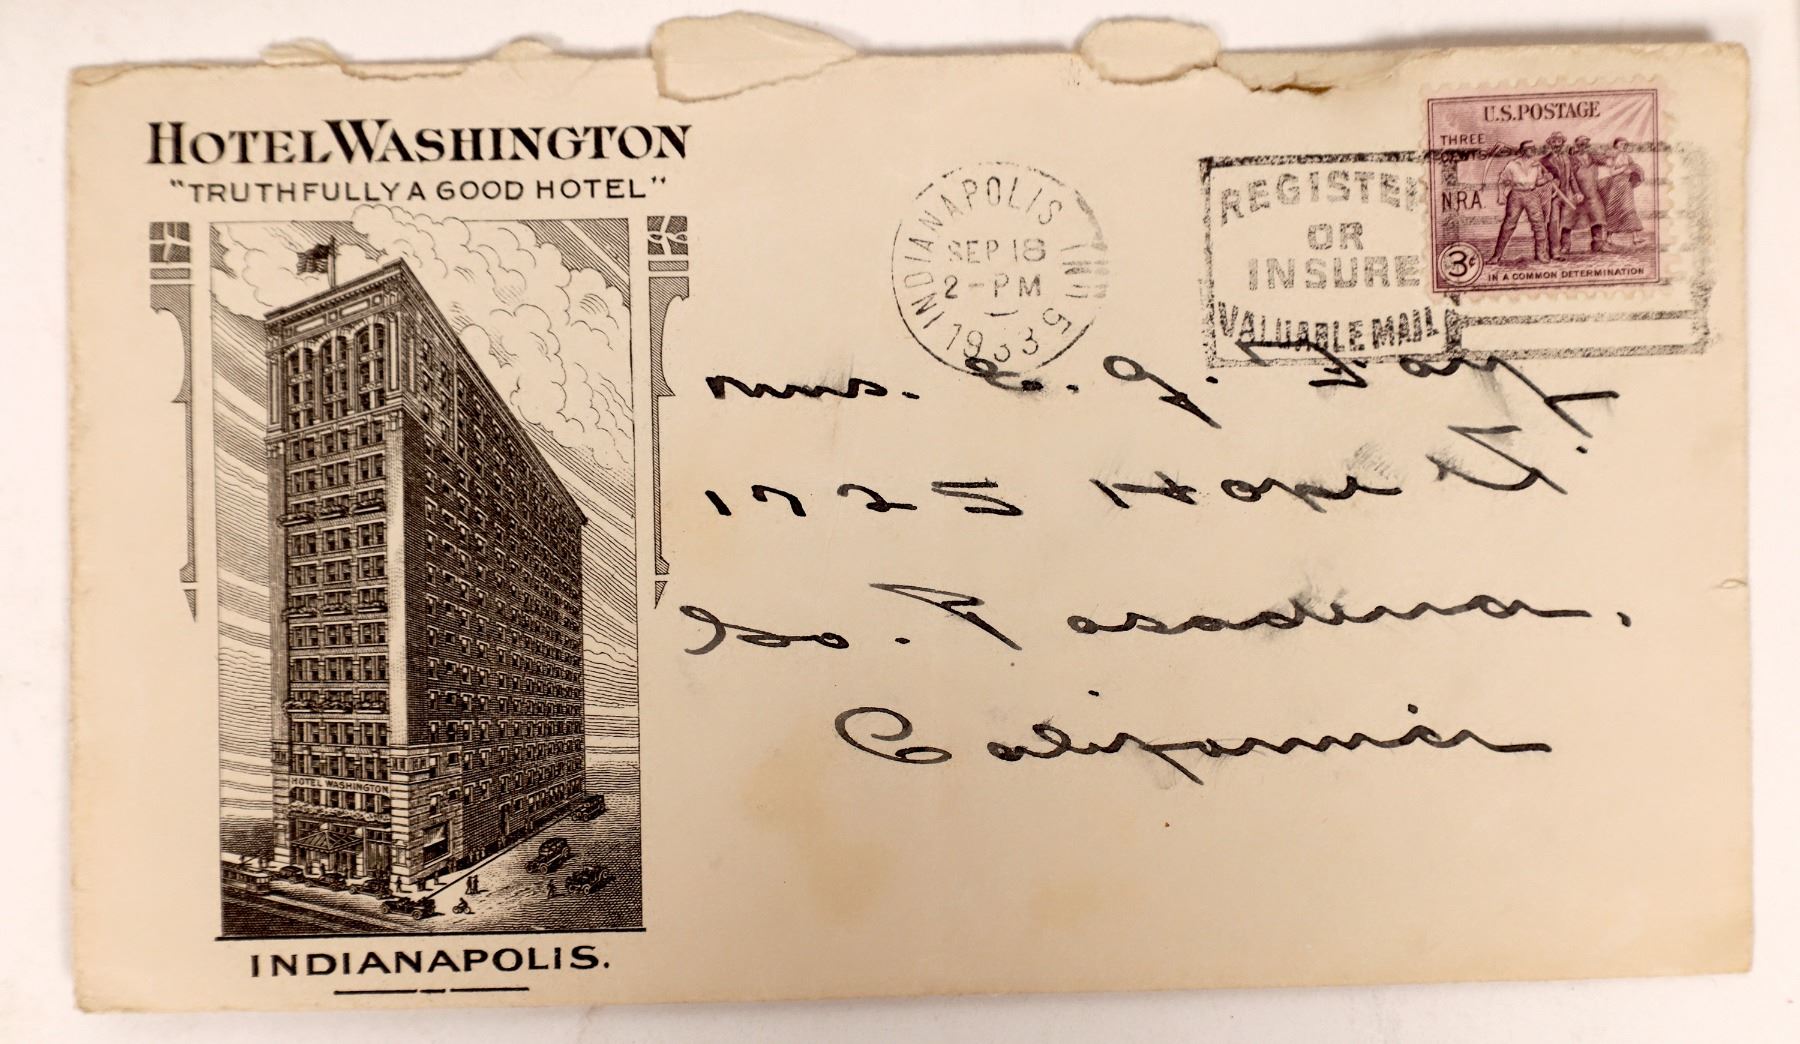 HOTEL WASHINGTON
"TRUTHFULLY A GOOD HOTEL"
HOTEL WASHINGTON
INDIANAPOLIS.
INDIANAPOLIS
SEP 18
2-PM
1933
5
REGISTER
OR
INSURE
VALUABLE MAIL
U.S. POSTAGE
THREE
CENTS
N.R.A.
3¢
IN A COMMON DETERMINATION
Mrs. E. J. Fay
1725 Hope St.
So. Pasadena,
California